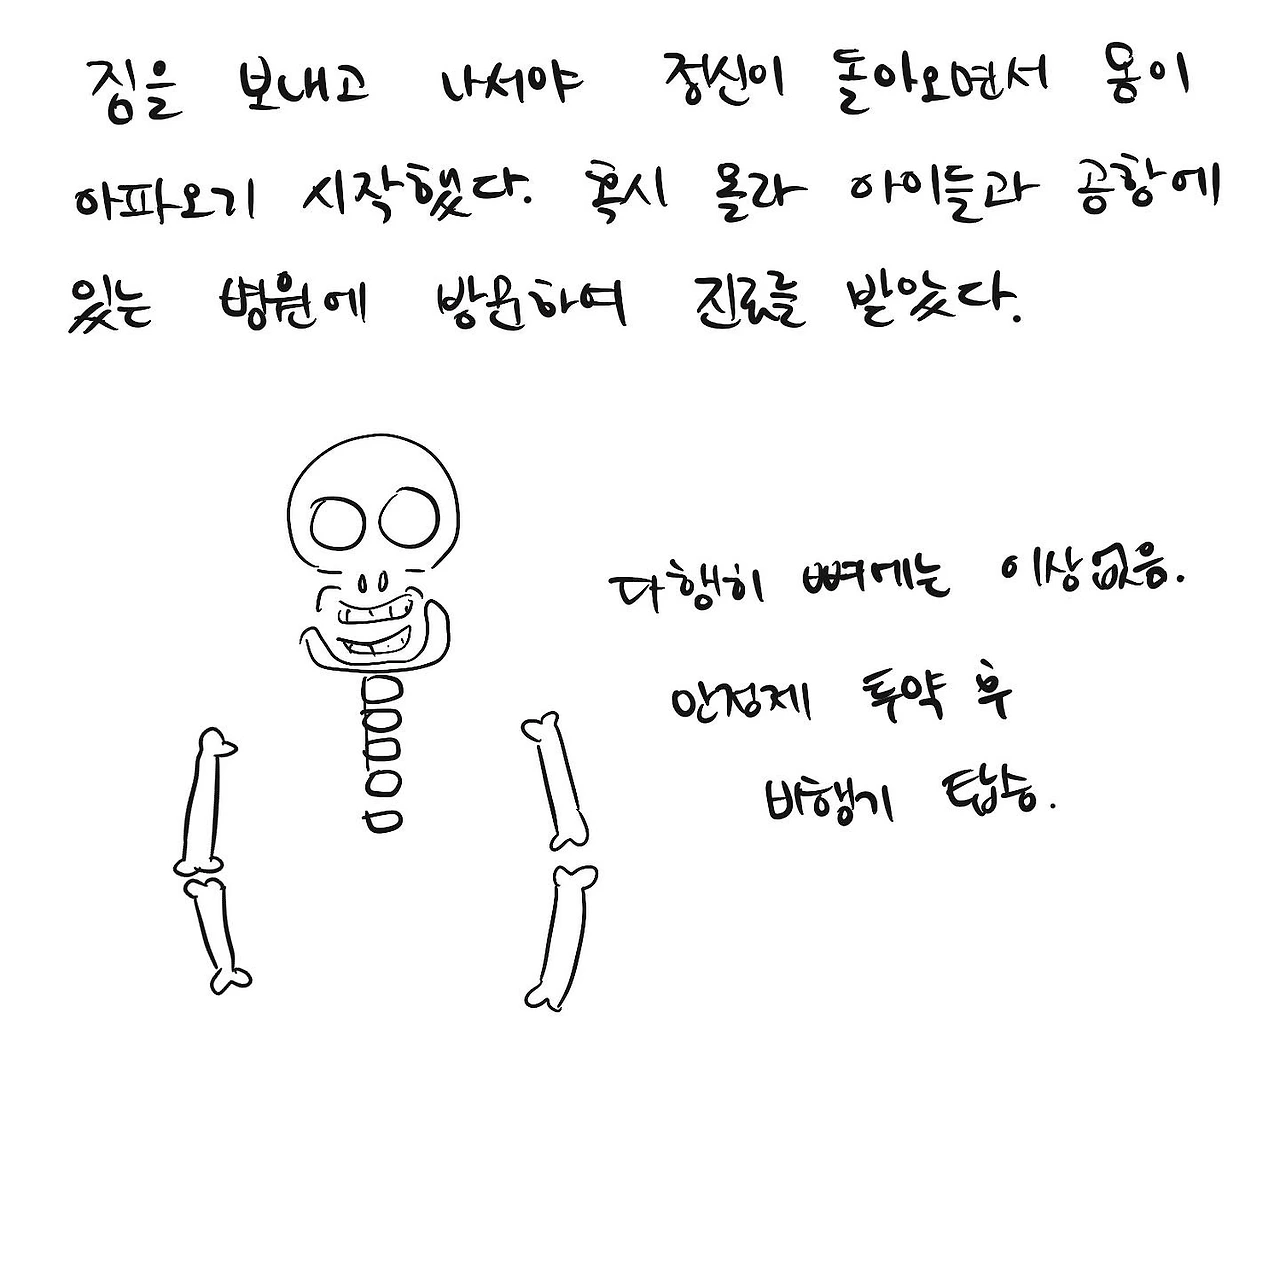 짐을 보내고 나서야 정신이 돌아오면서 몸이
아파오기 시작했다. 혹시 몰라 아이들과 공항에
있는 병원에 방문하여 진료를 받았다.
다행히 뼈에는 이상없음.
안정제 투약 후
비행기 탑승.